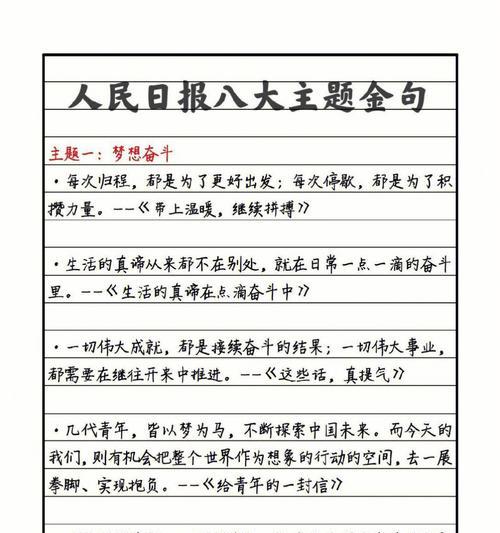 人民日报八大主题金句
主题一：梦想奋斗
·每次归程，都是为了更好出发；每次停歇，都是为了积
攒力量。--《带上温暖，继续拼搏》
·生活的真谛从来都不在别处，就在日常一点一滴的奋斗
里。--《生活的真谛在点滴奋斗中》
·一切伟大成就，都是接续奋斗的结果；一切伟大事业，
都需要在继往开来中推进。--《这些话，真提气》
·几代青年，皆以梦为马，不断探索中国未来。而今天的
我们，则有机会把整个世界作为想象的行动的空间，去一展
拳脚、实现抱负。--《给青年的一封信》